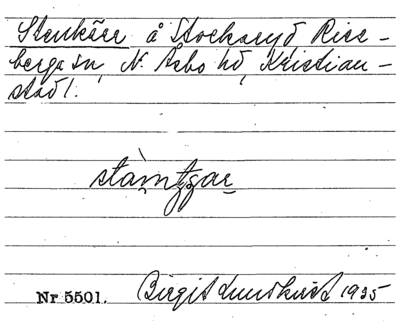 Stenkärr å Stockaryd Rise-
berga sn, N. Åsbo hd, Kristian-
stad l.
Nr 5501. Birgit Lundkvist 1935